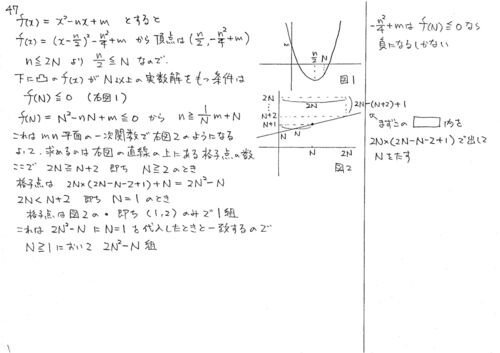 47
f(x) = x²-nx+m とすると
f(x) = (x-n/2)²-n²/4+m から 頂点は (n/2, -n²/4+m)
n≦2N より n/2≦N なので、
下に凸の f(x) が N以上の実数解をもつ条件は
f(N)≦0 (右図1)
f(N) = N²-nN+m≦0 から n≧1/N m+N
これは mn平面の一次関数で右図2のようになる
よって、求めるのは右図の直線の上にある格子点の数
ここで 2N≧N+2 即ち N≧2のとき
格子点は 2N×(2N-N-2+1)+N = 2N²-N
2N<N+2 即ち N=1のとき
格子点は図2の・即ち (1,2) のみで1組
これは 2N²-N に N=1を代入したときと一致するので
N≧1において 2N²-N 組
n/2
N
図1
2N
2N
N+2
N+1
N
N
2N
図2
2N-(N+2)+1
-n²/4+m は f(N)≦0 なら
負になるしかない
まずこの 内を
2N×(2N-N-2+1) で出して
Nをたす